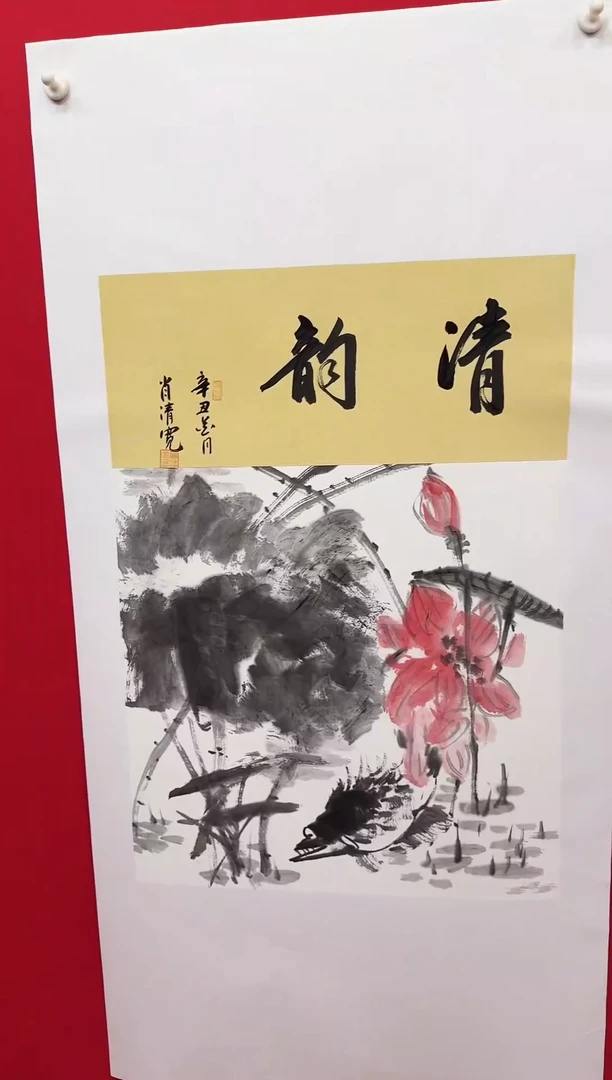 清韵
辛丑 月
肖清宽